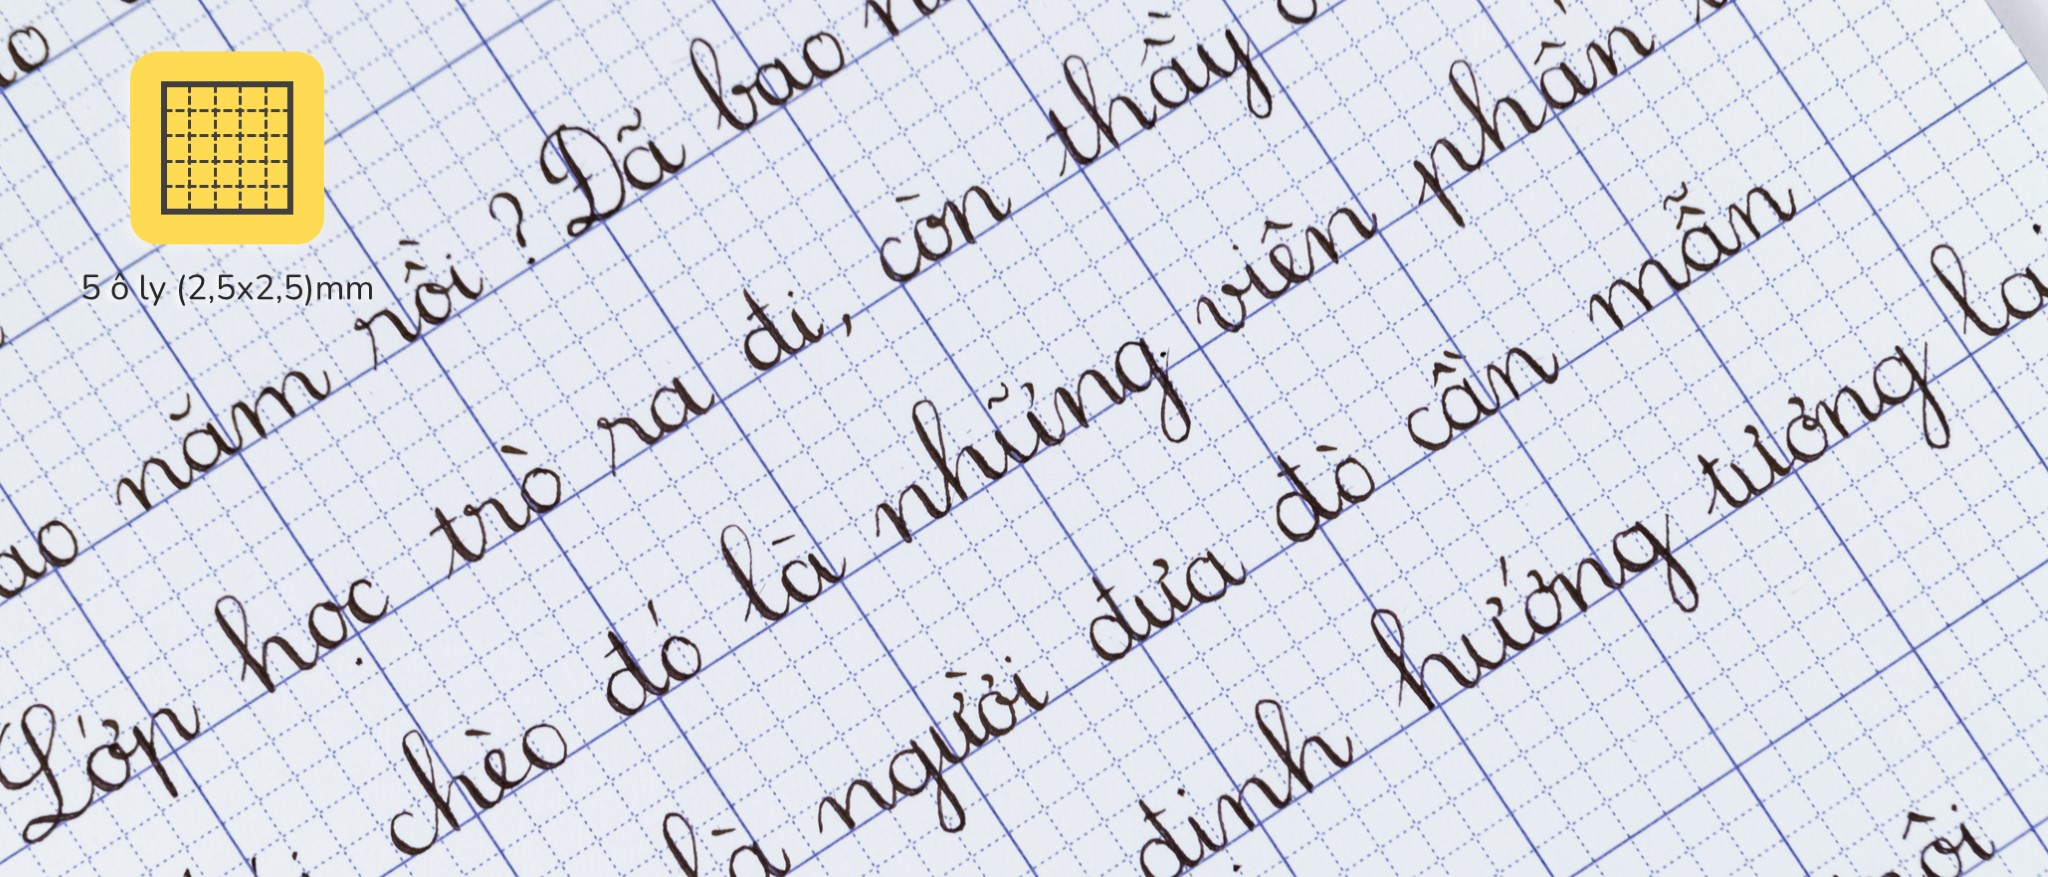 5 ô ly (2,5x2,5)mm
năm rồi ? Đã bao
Lớp học trò ra đi, còn thầy
chèo đó là những viên phấn
là người đưa đò cần mẫn
định hướng tương lai